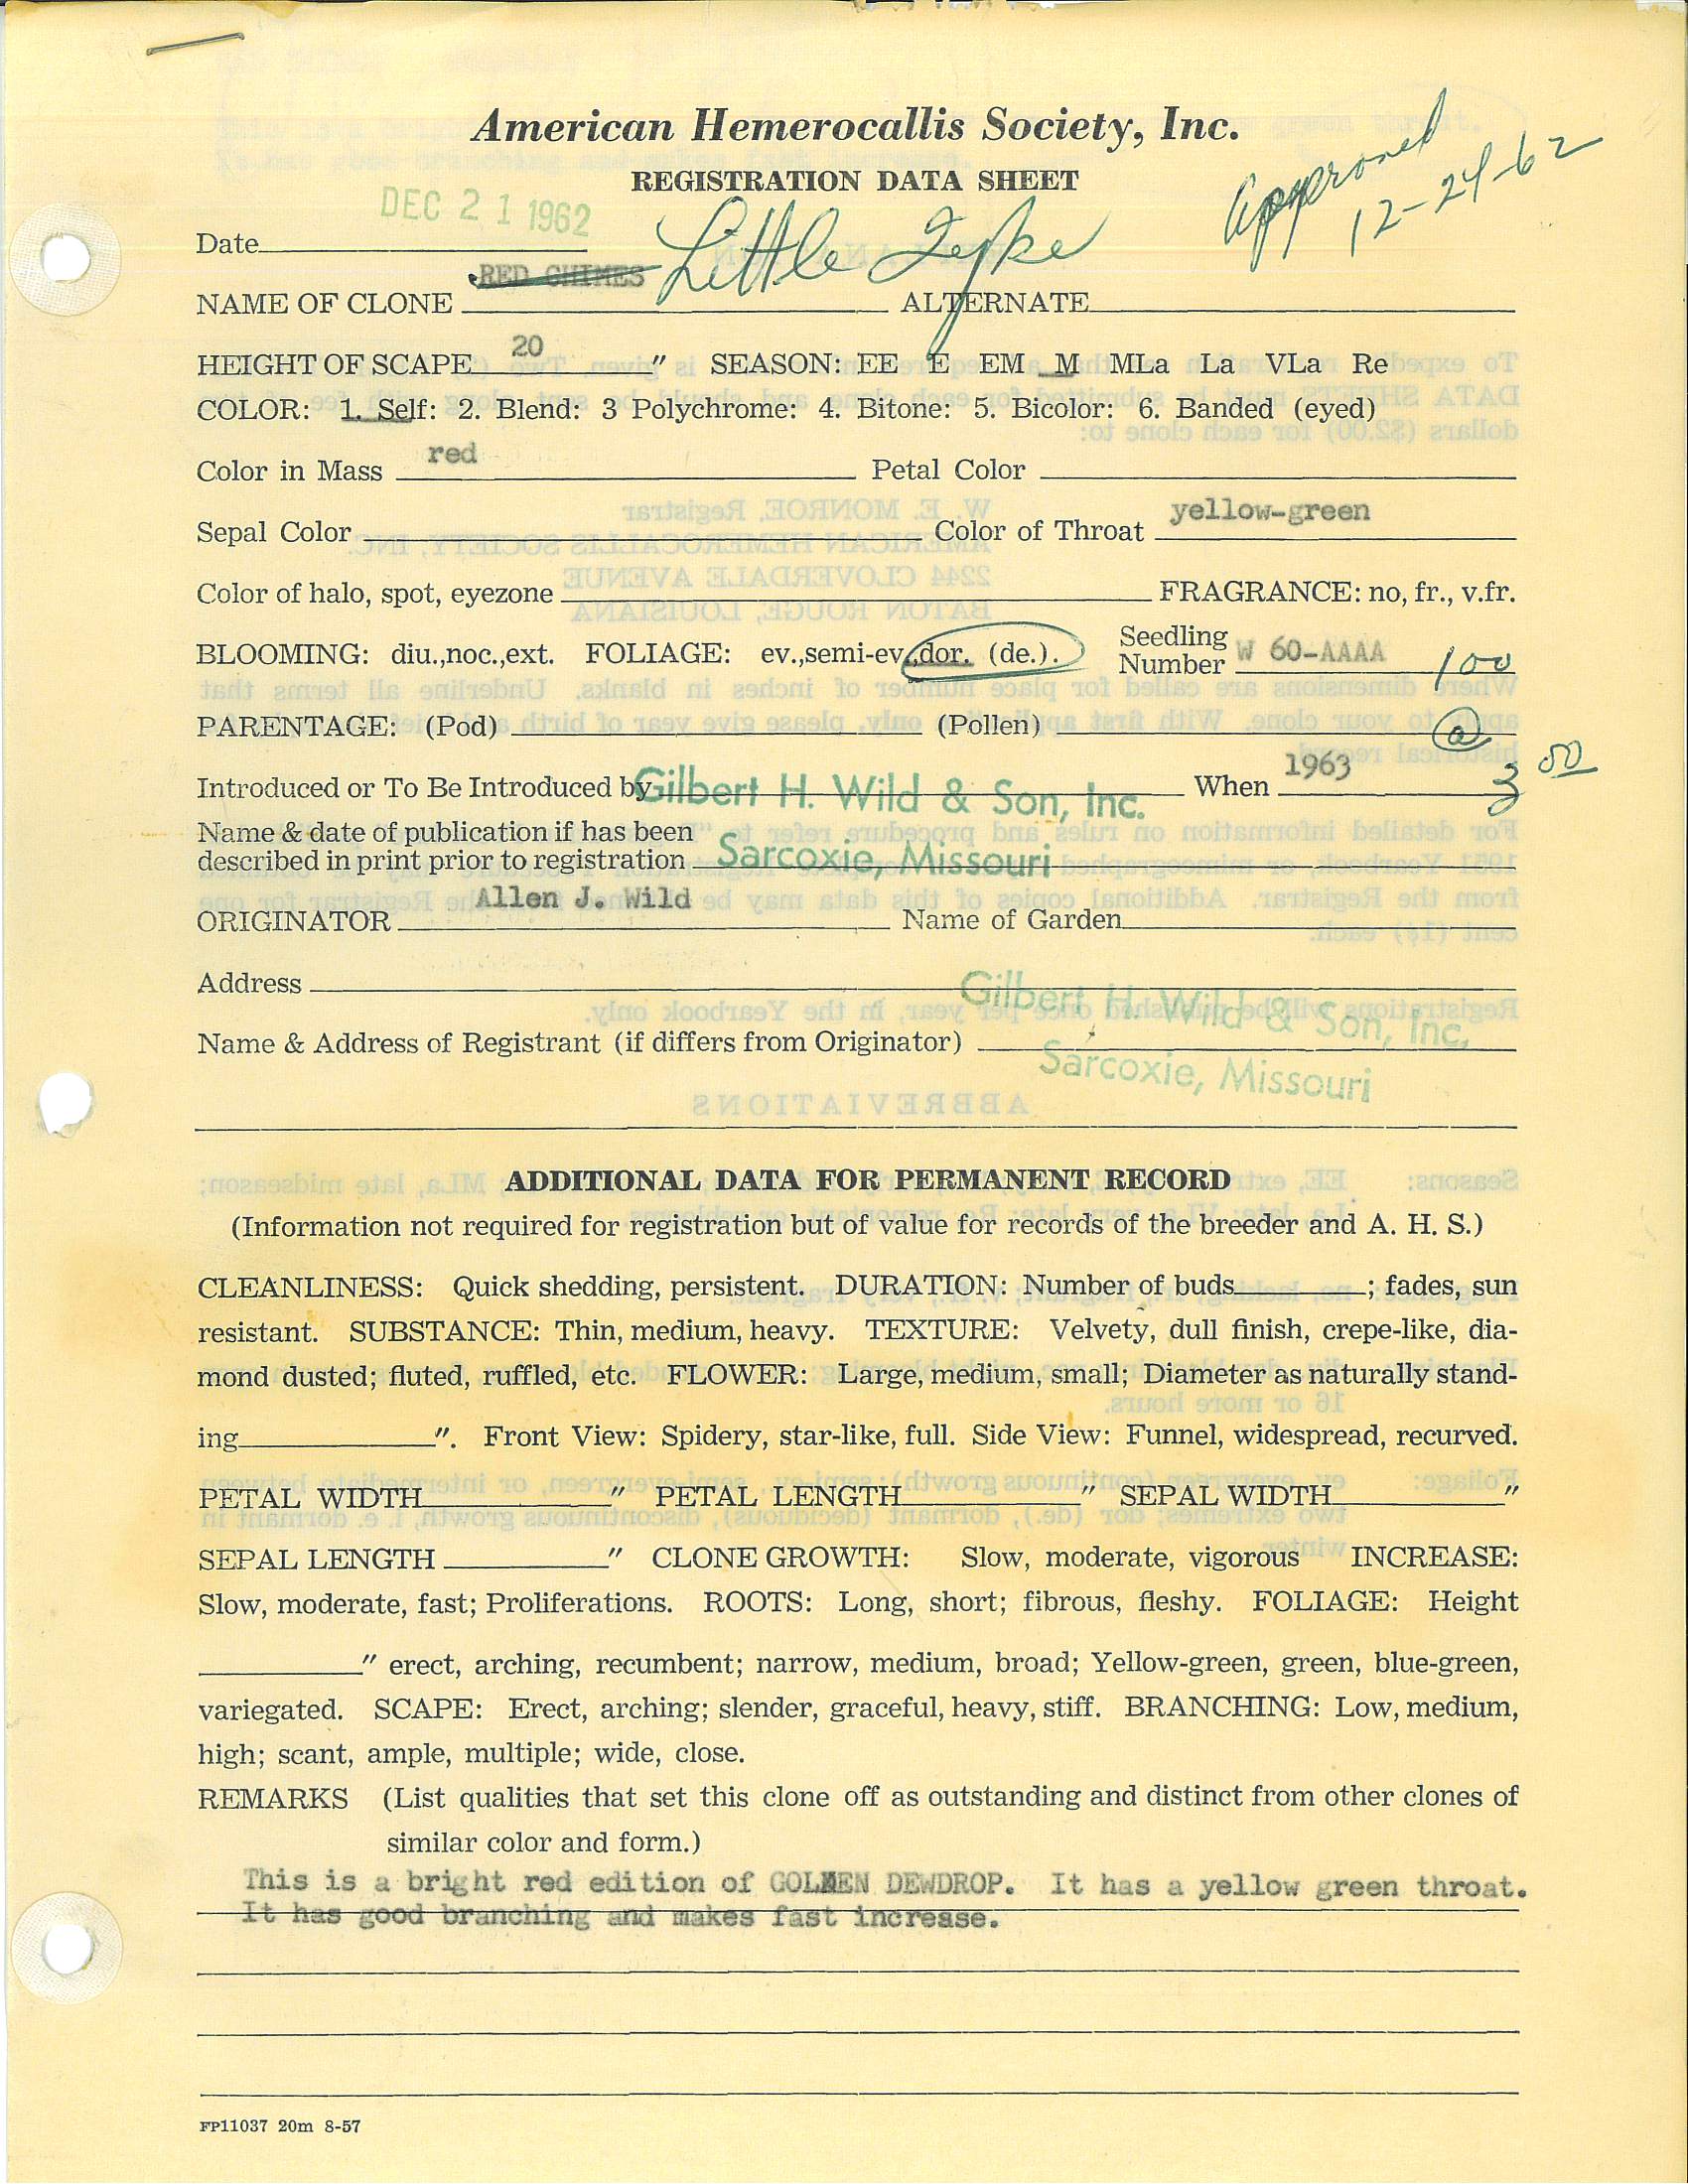 American Hemerocallis Society, Inc.
REGISTRATION DATA SHEET
Approved
12-24-62
DEC 21 1962
Date
RED CHIMES Little Tyke
NAME OF CLONE ALTERNATE
HEIGHT OF SCAPE 20 " SEASON: EE E EM M MLa La VLa Re
COLOR: 1. Self: 2. Blend: 3 Polychrome: 4. Bitone: 5. Bicolor: 6. Banded (eyed)
Color in Mass red Petal Color
Sepal Color Color of Throat yellow-green
Color of halo, spot, eyezone FRAGRANCE: no, fr., v.fr.
BLOOMING: diu.,noc.,ext. FOLIAGE: ev.,semi-ev.,dor. (de.). Seedling Number W 60-AAAA 100
PARENTAGE: (Pod) (Pollen) @
Introduced or To Be Introduced by Gilbert H. Wild & Son, Inc. When 1963 3 50
Name & date of publication if has been
described in print prior to registration Sarcoxie, Missouri
ORIGINATOR Allen J. Wild Name of Garden
Address Gilbert H. Wild & Son, Inc.
Name & Address of Registrant (if differs from Originator) Sarcoxie, Missouri
ADDITIONAL DATA FOR PERMANENT RECORD
(Information not required for registration but of value for records of the breeder and A. H. S.)
CLEANLINESS: Quick shedding, persistent. DURATION: Number of buds ; fades, sun
resistant. SUBSTANCE: Thin, medium, heavy. TEXTURE: Velvety, dull finish, crepe-like, dia-
mond dusted; fluted, ruffled, etc. FLOWER: Large, medium, small; Diameter as naturally stand-
ing ". Front View: Spidery, star-like, full. Side View: Funnel, widespread, recurved.
PETAL WIDTH " PETAL LENGTH " SEPAL WIDTH "
SEPAL LENGTH " CLONE GROWTH: Slow, moderate, vigorous INCREASE:
Slow, moderate, fast; Proliferations. ROOTS: Long, short; fibrous, fleshy. FOLIAGE: Height
" erect, arching, recumbent; narrow, medium, broad; Yellow-green, green, blue-green,
variegated. SCAPE: Erect, arching; slender, graceful, heavy, stiff. BRANCHING: Low, medium,
high; scant, ample, multiple; wide, close.
REMARKS (List qualities that set this clone off as outstanding and distinct from other clones of
similar color and form.)
This is a bright red edition of GOLDEN DEWDROP. It has a yellow green throat.
It has good branching and makes fast increase.
FP11037 20m 8-57